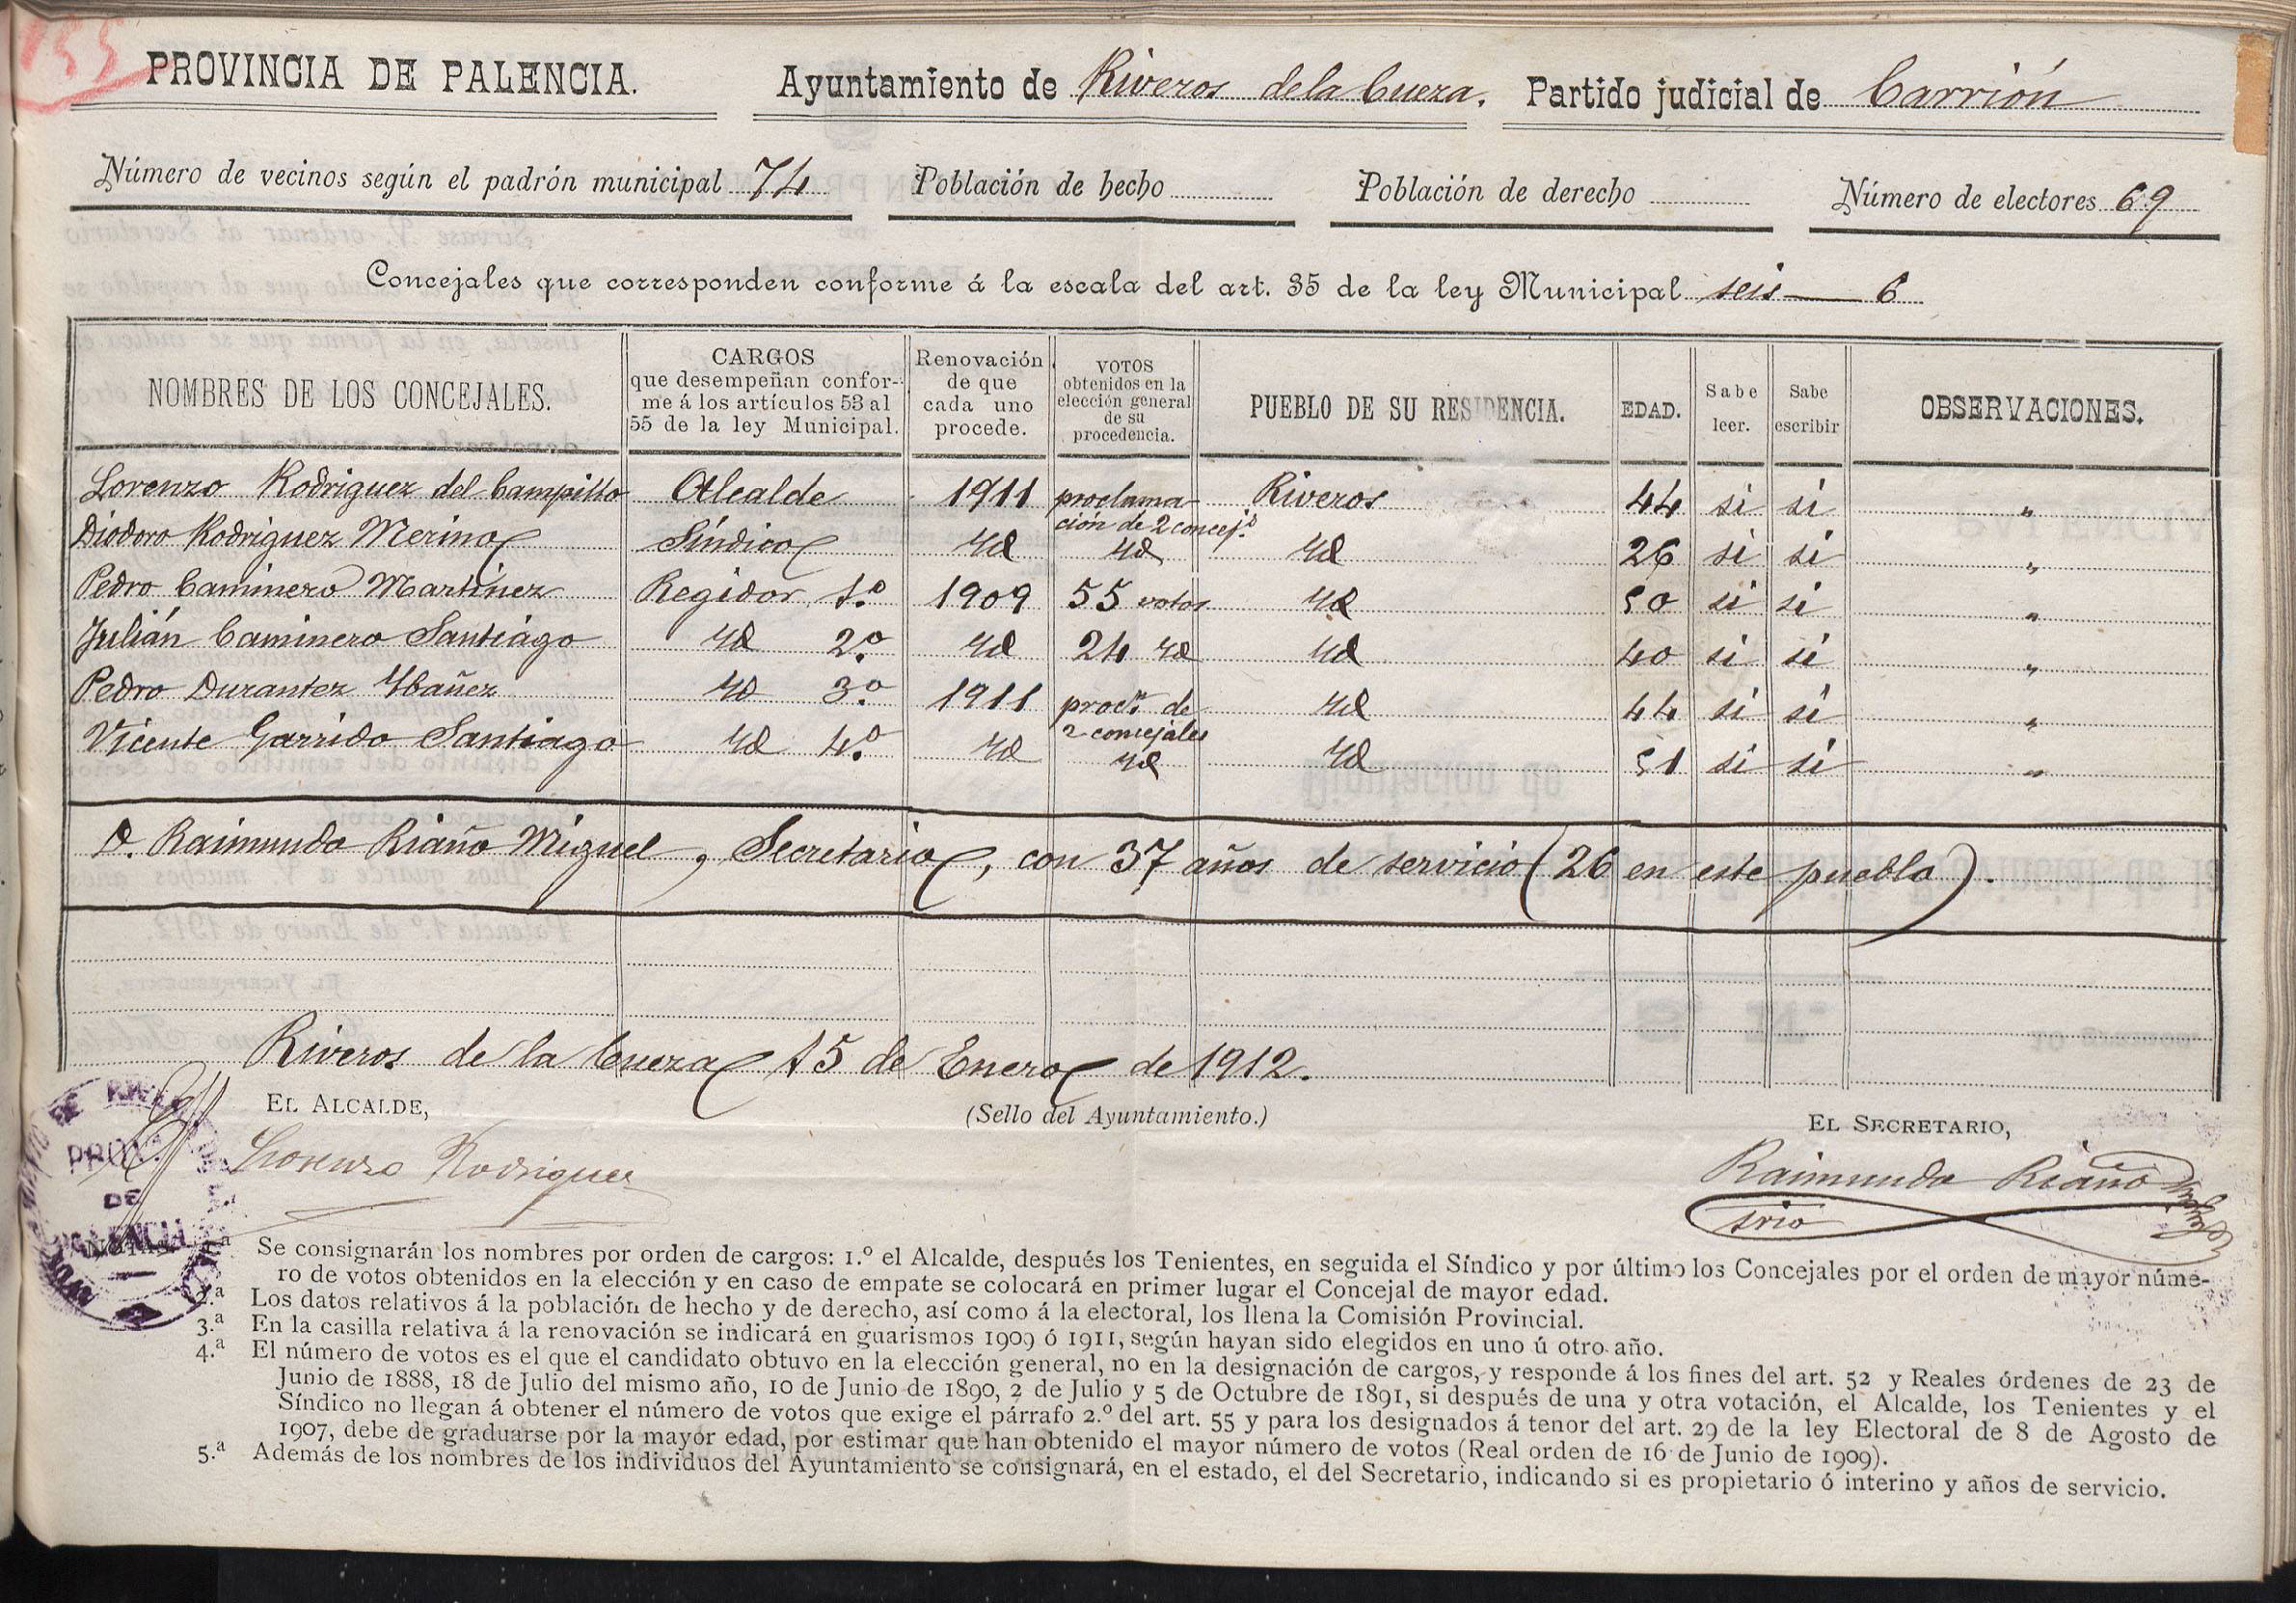 155
PROVINCIA DE PALENCIA. Ayuntamiento de Riveros de la Cueza. Partido judicial de Carrión
Número de vecinos según el padrón municipal 74 Población de hecho Población de derecho Número de electores 69
Concejales que corresponden conforme á la escala del art. 35 de la ley Municipal seis 6
NOMBRES DE LOS CONCEJALES. CARGOS que desempeñan conforme á los artículos 53 al 55 de la ley Municipal. Renovación de que cada uno procede. VOTOS obtenidos en la elección general de su procedencia. PUEBLO DE SU RESIDENCIA. EDAD. Sabe leer. Sabe escribir OBSERVACIONES.
Lorenzo Rodriguez del Campillo Alcalde 1911 proclamación de 2 concej.s Riveros 44 si si "
Diodoro Rodriguez Merino Síndico Yd Yd Yd 26 si si "
Pedro Caminero Martinez Regidor 1.º 1909 55 votos Yd 50 si si "
Julián Caminero Santiago Yd 2.º Yd 24 Yd Yd 40 si si "
Pedro Durantez Ybañez Yd 3.º 1911 procl.n de 2 concejales Yd 44 si si "
Vicente Garrido Santiago Yd 4.º Yd Yd Yd 51 si si "
D. Raimundo Riaño Miguel, Secretario, con 37 años de servicio (26 en este pueblo).
Riveros de la Cueza 15 de Enero de 1912.
EL ALCALDE, (Sello del Ayuntamiento.) EL SECRETARIO,
Lorenzo Rodriguez Raimundo Riaño
srio
PROV.ª
DE
PALENCIA
Se consignarán los nombres por orden de cargos: 1.º el Alcalde, después los Tenientes, en seguida el Síndico y por último los Concejales por el orden de mayor núme-
ro de votos obtenidos en la elección y en caso de empate se colocará en primer lugar el Concejal de mayor edad.
2.ª Los datos relativos á la población de hecho y de derecho, así como á la electoral, los llena la Comisión Provincial.
3.ª En la casilla relativa á la renovación se indicará en guarismos 1909 ó 1911, según hayan sido elegidos en uno ú otro año.
4.ª El número de votos es el que el candidato obtuvo en la elección general, no en la designación de cargos, y responde á los fines del art. 52 y Reales órdenes de 23 de
Junio de 1888, 18 de Julio del mismo año, 10 de Junio de 1890, 2 de Julio y 5 de Octubre de 1891, si después de una y otra votación, el Alcalde, los Tenientes y el
Síndico no llegan á obtener el número de votos que exige el párrafo 2.º del art. 55 y para los designados á tenor del art. 29 de la ley Electoral de 8 de Agosto de
1907, debe de graduarse por la mayor edad, por estimar que han obtenido el mayor número de votos (Real orden de 16 de Junio de 1909).
5.ª Además de los nombres de los individuos del Ayuntamiento se consignará, en el estado, el del Secretario, indicando si es propietario ó interino y años de servicio.